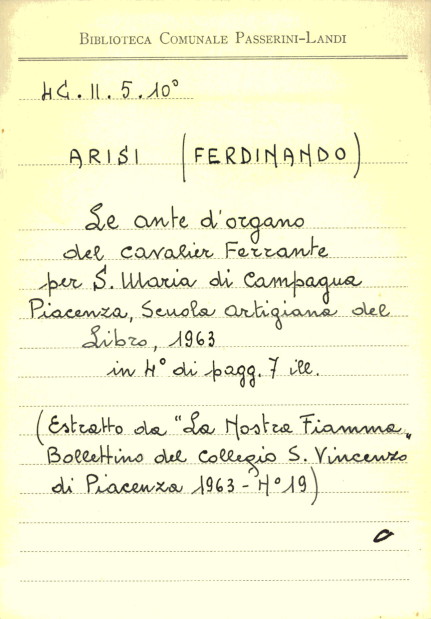 BIBLIOTECA COMUNALE PASSERINI-LANDI
4C.II.5.10°
ARISI (FERDINANDO)
Le ante d'organo
del cavalier Ferrante
per S. Maria di Campagna
Piacenza, Scuola artigiana del
Libro, 1963
in 4° di pagg. 7 ill.
(Estratto da "La Nostra Fiamma"
Bollettino del Collegio S. Vincenzo
di Piacenza 1963 - N° 19)